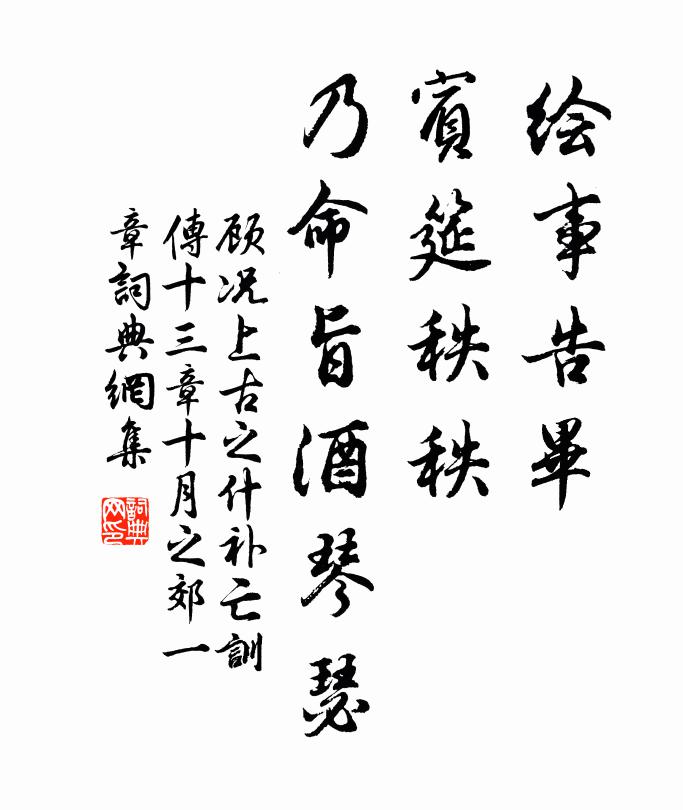 绘事告畢
賓筵秩秩
乃命旨酒琴瑟
顾况上古之什补亡訓
傳十三章十月之郊一
章詞典網集
詞典
网印